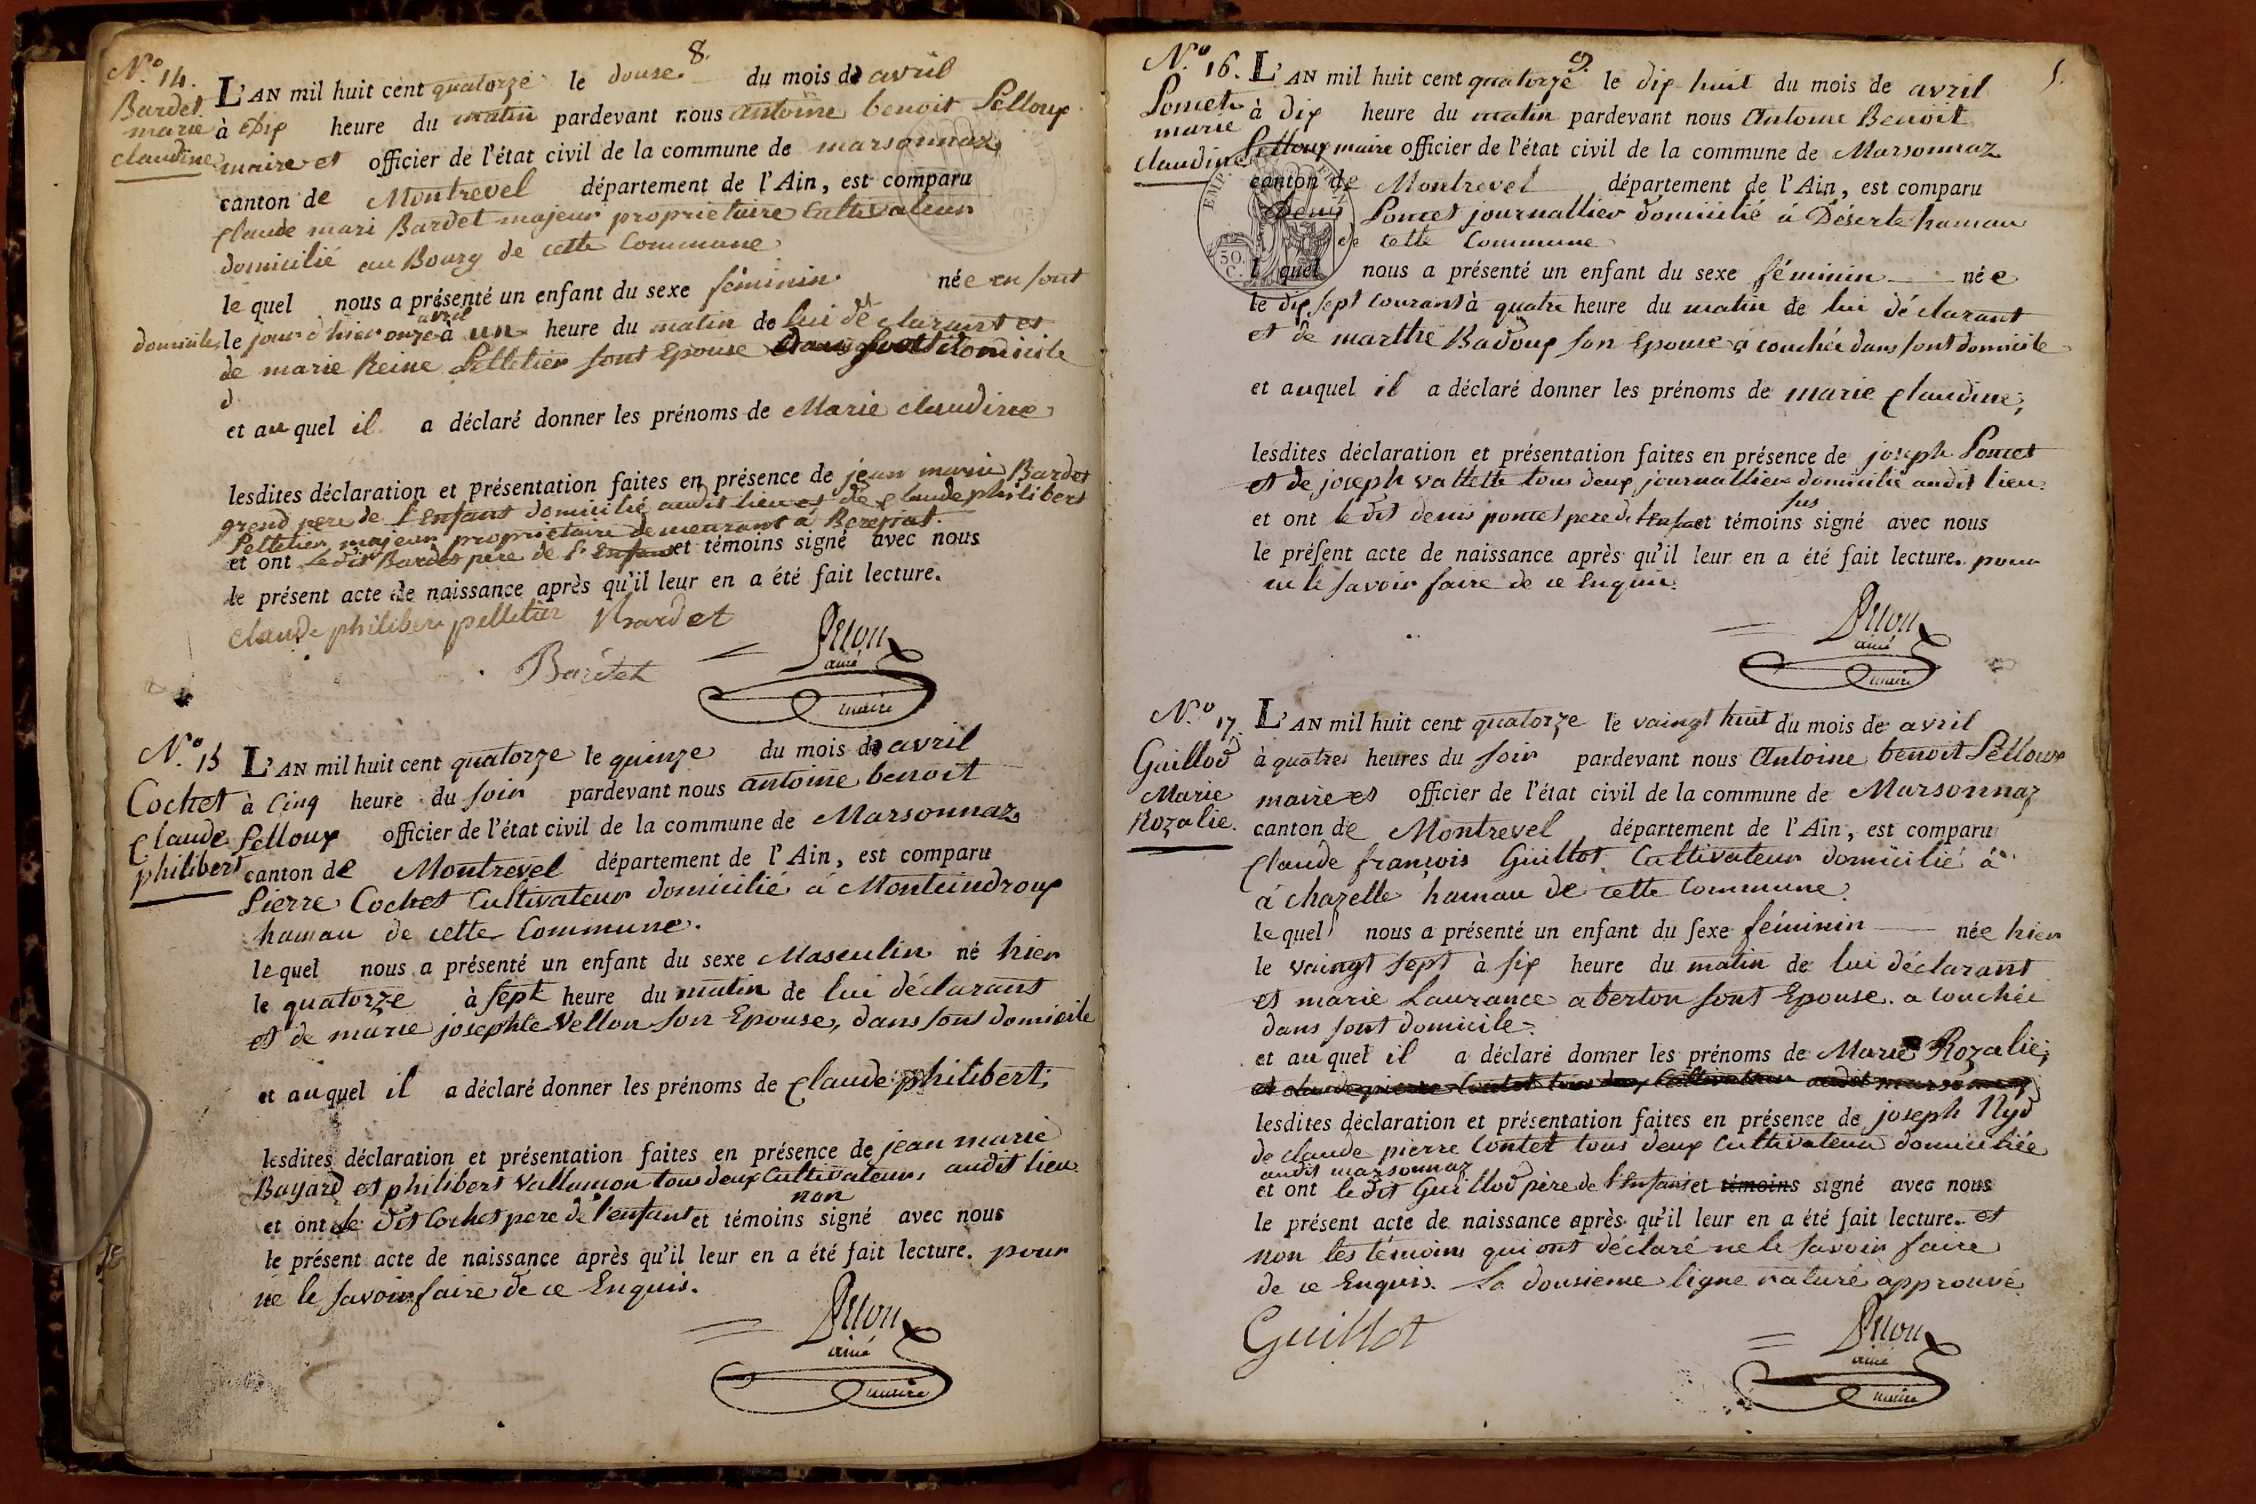 8.
N.° 14.
Bardet
marie
claudine
L'AN mil huit cent quatorze le douse du mois de avril
à Dix heure du matin pardevant nous antoine benoit Pelloux
maire et officier de l'état civil de la commune de marsonnaz
canton de Montrevel département de l'Ain, est comparu
Claude mari Bardet majeur proprietaire Cultivateur
domicilié au Bourg de cette Commune
le quel nous a présenté un enfant du sexe féminin. née en sont
domicile, le jour d'hier onze avril à un heure du matin de lui déclarant et
de marie Reine Pelletier sont Epouse dans sont domicile
d
et au quel il a déclaré donner les prénoms de Marie claudine
lesdites déclaration et présentation faites en présence de jean marie Bardet
grend pere de l'Enfant domicilié audit lieu et de Claude philibert
Pelletier majeur proprietaire demeurant à Bereyziat.
et ont Le dit Bardet père de l'Enfant et témoins signé avec nous
le présent acte de naissance après qu'il leur en a été fait lecture.
Claude philibert pelletier Bardet
Bardet
Pelloux
ainé
maire
N.° 15
Cochet
Claude
philibert
L'AN mil huit cent quatorze le quinze du mois de avril
à Cinq heure du soir pardevant nous antoine benoit
Pelloux officier de l'état civil de la commune de Marsonnaz
canton de Montrevel département de l'Ain, est comparu
Pierre Cochet Cultivateur domicilié à Monteindroux
hamau de cette Commune.
le quel nous a présenté un enfant du sexe Masculin né hier
le quatorze à sept heure du matin de lui déclarant
et de marie josephte Vellon son Epouse, dans sont domicile
et au quel il a déclaré donner les prénoms de Claude philibert;
lesdites déclaration et présentation faites en présence de jean marie
Bayard et philibert Vallamon tous deux Cultivateurs, audit lieu
et ont le dit Cochet pere de l'enfant et témoins non signé avec nous
le présent acte de naissance après qu'il leur en a été fait lecture. pour
ne le savoir faire de ce Enquis.
Pelloux
ainé
maire
9.
5.
N.° 16.
Poncet
marie
claudine
L'AN mil huit cent quatorze le dix huit du mois de avril
à dix heure du matin pardevant nous Antoine Benoit
Pelloux maire officier de l'état civil de la commune de Marsonnaz
canton de Montrevel département de l'Ain, est comparu
Denis Poncet journallier domicilié à Déserte hamau
de cette Commune
le quel nous a présenté un enfant du sexe féminin née
le dix sept courant à quatre heure du matin de lui déclarant
et de marthe Badoux son Epouse accouchée dans sont domicile
et au quel il a déclaré donner les prénoms de marie Claudine;
lesdites déclaration et présentation faites en présence de joseph Poncet
et de joseph vallette tous deux journalliers domicilié audit lieu.
et ont le dit denis poncet pere de l'Enfant et témoins sus signé avec nous
le présent acte de naissance après qu'il leur en a été fait lecture. pour
ne le savoir faire de ce Enquis.
Pelloux
ainé
maire
N.° 17.
Guillod
Marie
Rozalie.
L'AN mil huit cent quatorze le vaingt huit du mois de avril
à quatres heures du soir pardevant nous Antoine benoit Pelloux
maire et officier de l'état civil de la commune de Marsonnaz
canton de Montrevel, département de l'Ain, est comparu
Claude françois Guillot, Cultivateur domicilié à
à chazelle hamau de cette Commune.
le quel nous a présenté un enfant du sexe féminin née hier
le vaingt sept à six heure du matin de lui déclarant
et marie Laurance aberton sont Epouse. a couchée
dans sont domicile.
et au quel il a déclaré donner les prénoms de Marie Rozalie;
et claude pierre Contet tous deux Cultivateur audit marsonnaz
lesdites déclaration et présentation faites en présence de joseph Nyd
de claude pierre Contet tous deux Cultivateurs domiciliée
audit marsonnaz
et ont le dit Guillod père de l'Enfant et témoins signé avec nous
le présent acte de naissance après qu'il leur en a été fait lecture. et
non les témoins qui ont déclaré ne le savoir faire
de ce Enquis. La dousieme ligne raturé approuvé
Guillot
Pelloux
ainé
maire